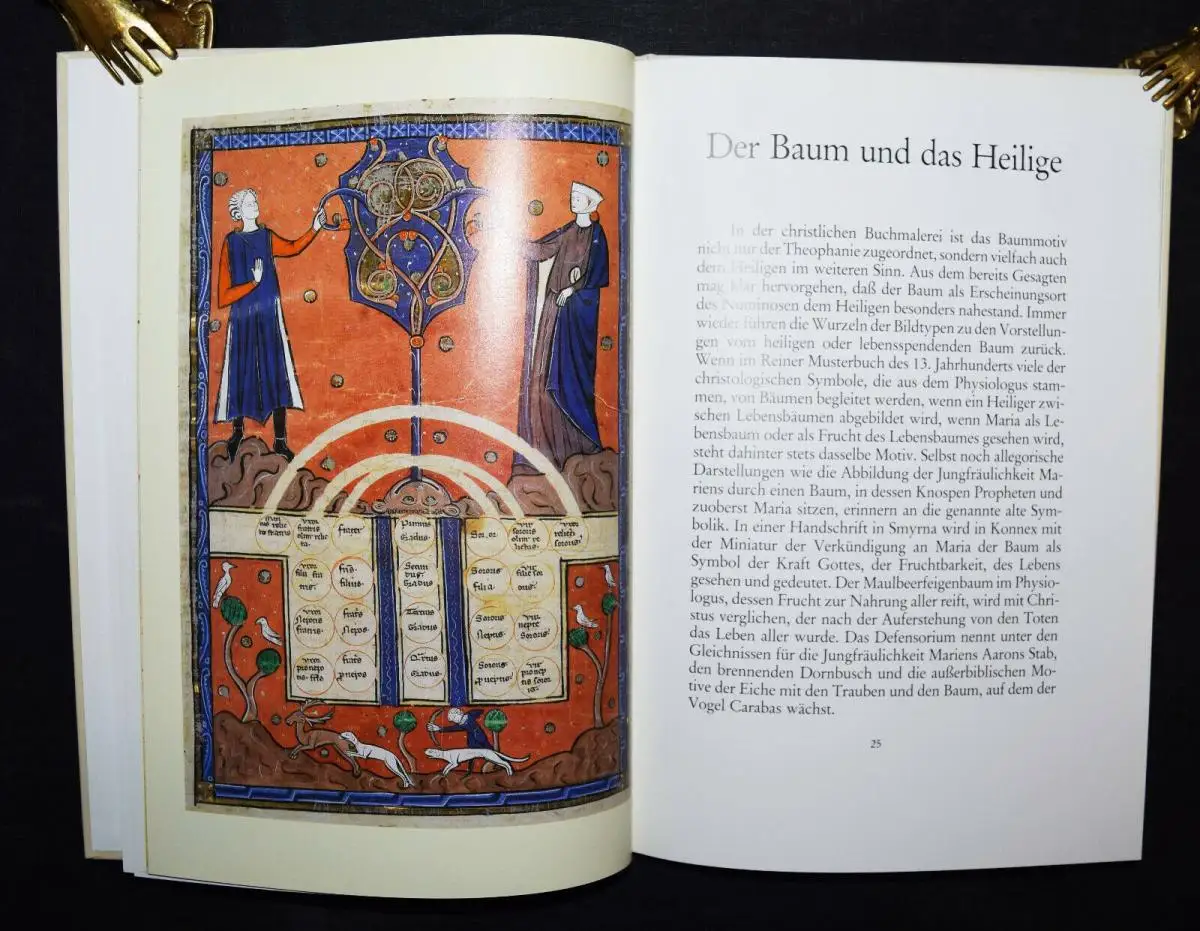 Primus
Gradus
frater
Soror
Secun
dus
Gradus
filius
Sororis
filia
Tertius
Gradus
Nepos
Sororis
Neptis
Sororis
Der Baum und das Heilige
In der christlichen Buchmalerei ist das Baummotiv
nicht nur der Theophanie zugeordnet, sondern vielfach auch
dem Heiligen im weiteren Sinn. Aus dem bereits Gesagten
mag klar hervorgehen, daß der Baum als Erscheinungsort
des Numinosen dem Heiligen besonders nahestand. Immer
wieder führen die Wurzeln der Bildtypen zu den Vorstellun-
gen vom heiligen oder lebensspendenden Baum zurück.
Wenn im Reiner Musterbuch des 13. Jahrhunderts viele der
christologischen Symbole, die aus dem Physiologus stam-
men, von Bäumen begleitet werden, wenn ein Heiliger zwi-
schen Lebensbäumen abgebildet wird, wenn Maria als Le-
bensbaum oder als Frucht des Lebensbaumes gesehen wird,
steht dahinter stets dasselbe Motiv. Selbst noch allegorische
Darstellungen wie die Abbildung der Jungfräulichkeit Ma-
riens durch einen Baum, in dessen Knospen Propheten und
zuoberst Maria sitzen, erinnern an die genannte alte Sym-
bolik. In einer Handschrift in Smyrna wird in Konnex mit
der Miniatur der Verkündigung an Maria der Baum als
Symbol der Kraft Gottes, der Fruchtbarkeit, des Lebens
gesehen und gedeutet. Der Maulbeerfeigenbaum im Physio-
logus, dessen Frucht zur Nahrung aller reift, wird mit Chri-
stus verglichen, der nach der Auferstehung von den Toten
das Leben aller wurde. Das Defensorium nennt unter den
Gleichnissen für die Jungfräulichkeit Mariens Aarons Stab,
den brennenden Dornbusch und die außerbiblischen Mo-
tive der Eiche mit den Trauben und den Baum, auf dem der
Vogel Carabas wächst.
25